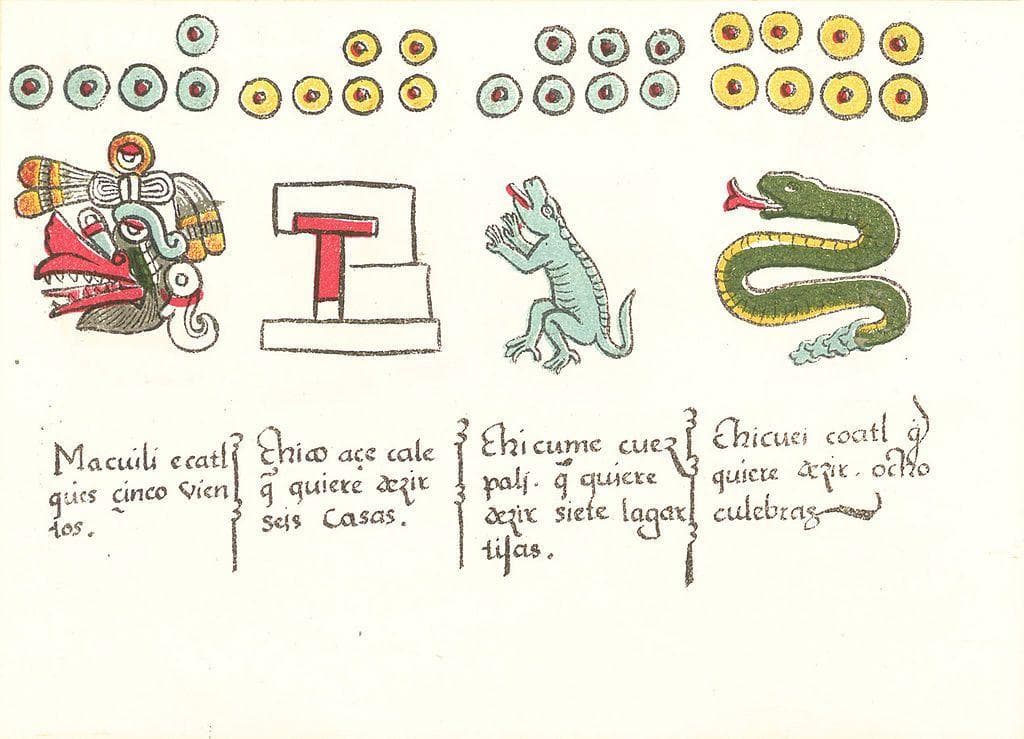 Macuili ecatl
qües çinco vien
tos.
Chico açe cale
q̄ quiere dezir
seis casas.
Chicume cuez
pali. q̄ quiere
dezir siete lagar
tijas.
Chicuei coatl q̄
quiere dezir. ocho
culebras